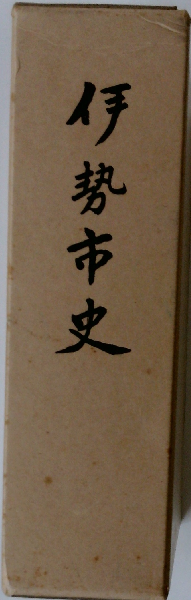 伊勢市史